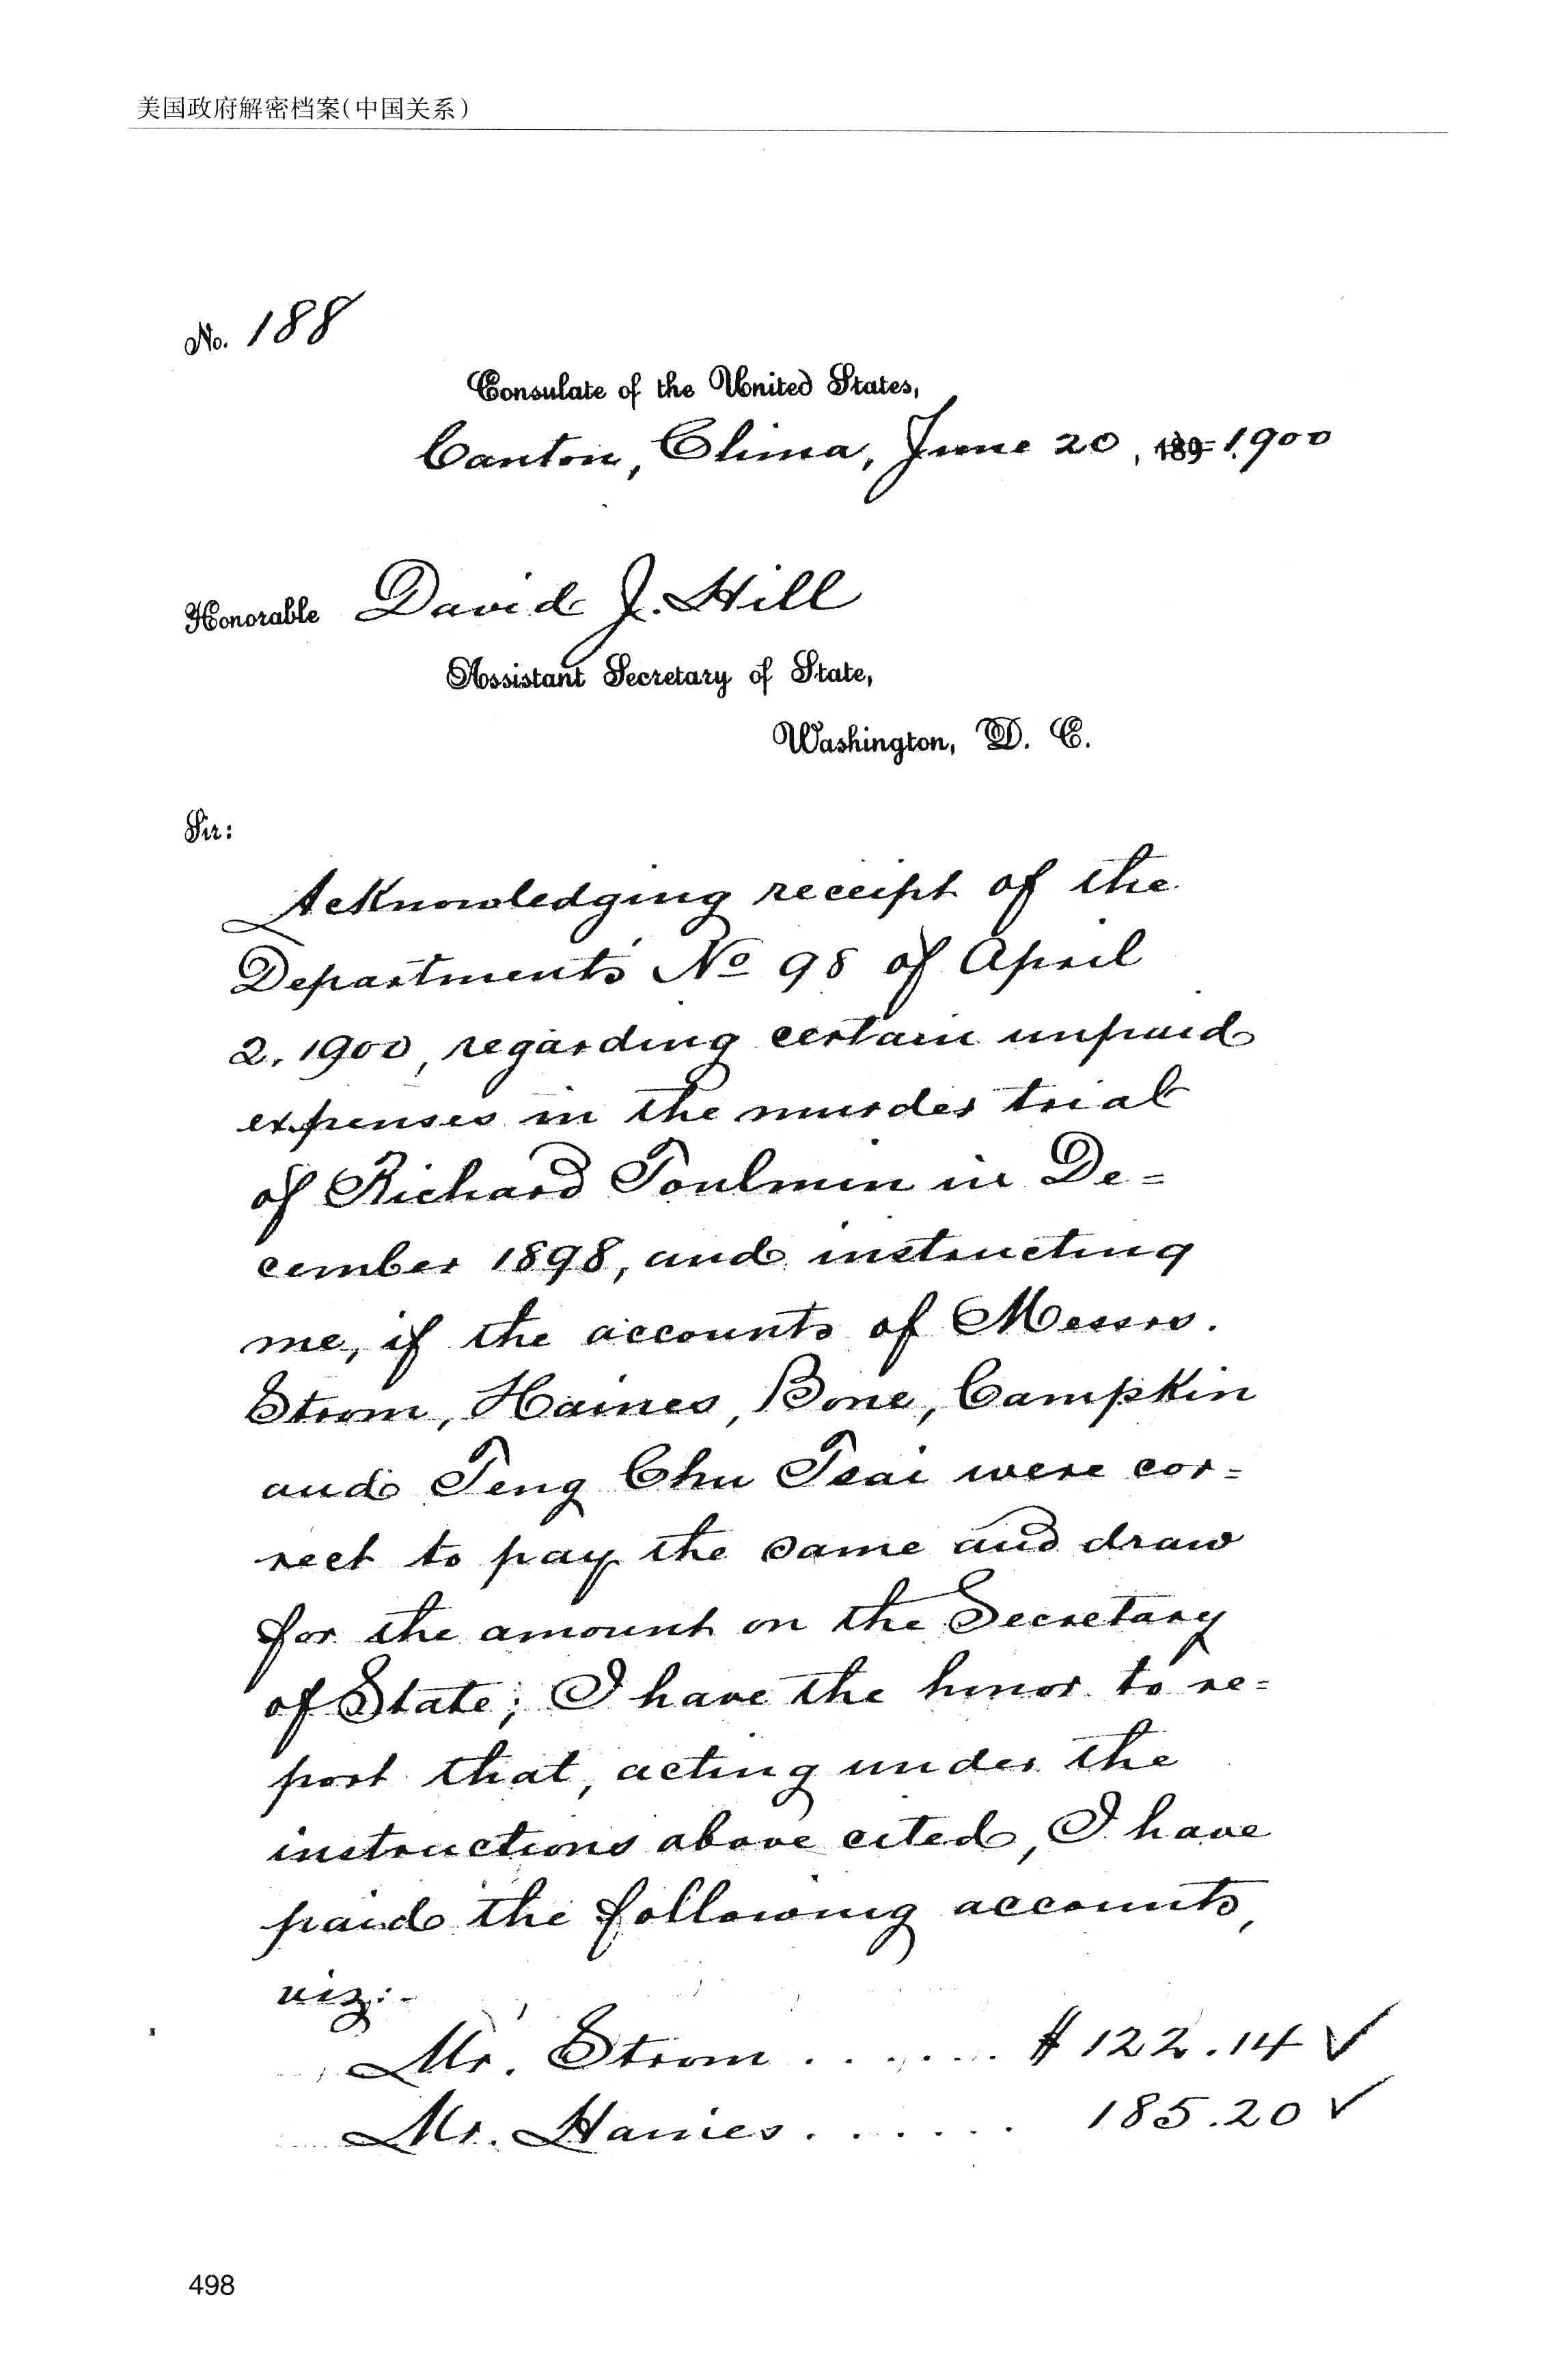 美国政府解密档案(中国关系)
No. 188
Consulate of the United States,
Canton, China, June 20, 189 1900
Honorable David J. Hill
Assistant Secretary of State,
Washington, D. C.
Sir:
Acknowledging receipt of the
Department's No 98 of April
2, 1900, regarding certain unpaid
expenses in the murder trial
of Richard Toulmin in De=
cember 1898, and instructing
me, if the accounts of Messrs.
Strom, Haines, Bone, Campkin
and Teng Chu Tsai were cor=
rect to pay the same and draw
for the amount on the Secretary
of State; I have the honor to re=
port that, acting under the
instructions above cited, I have
paid the following accounts,
viz:-
Mr. Strom ....... $122.14 ✓
Mr. Haines ...... 185.20 ✓
498